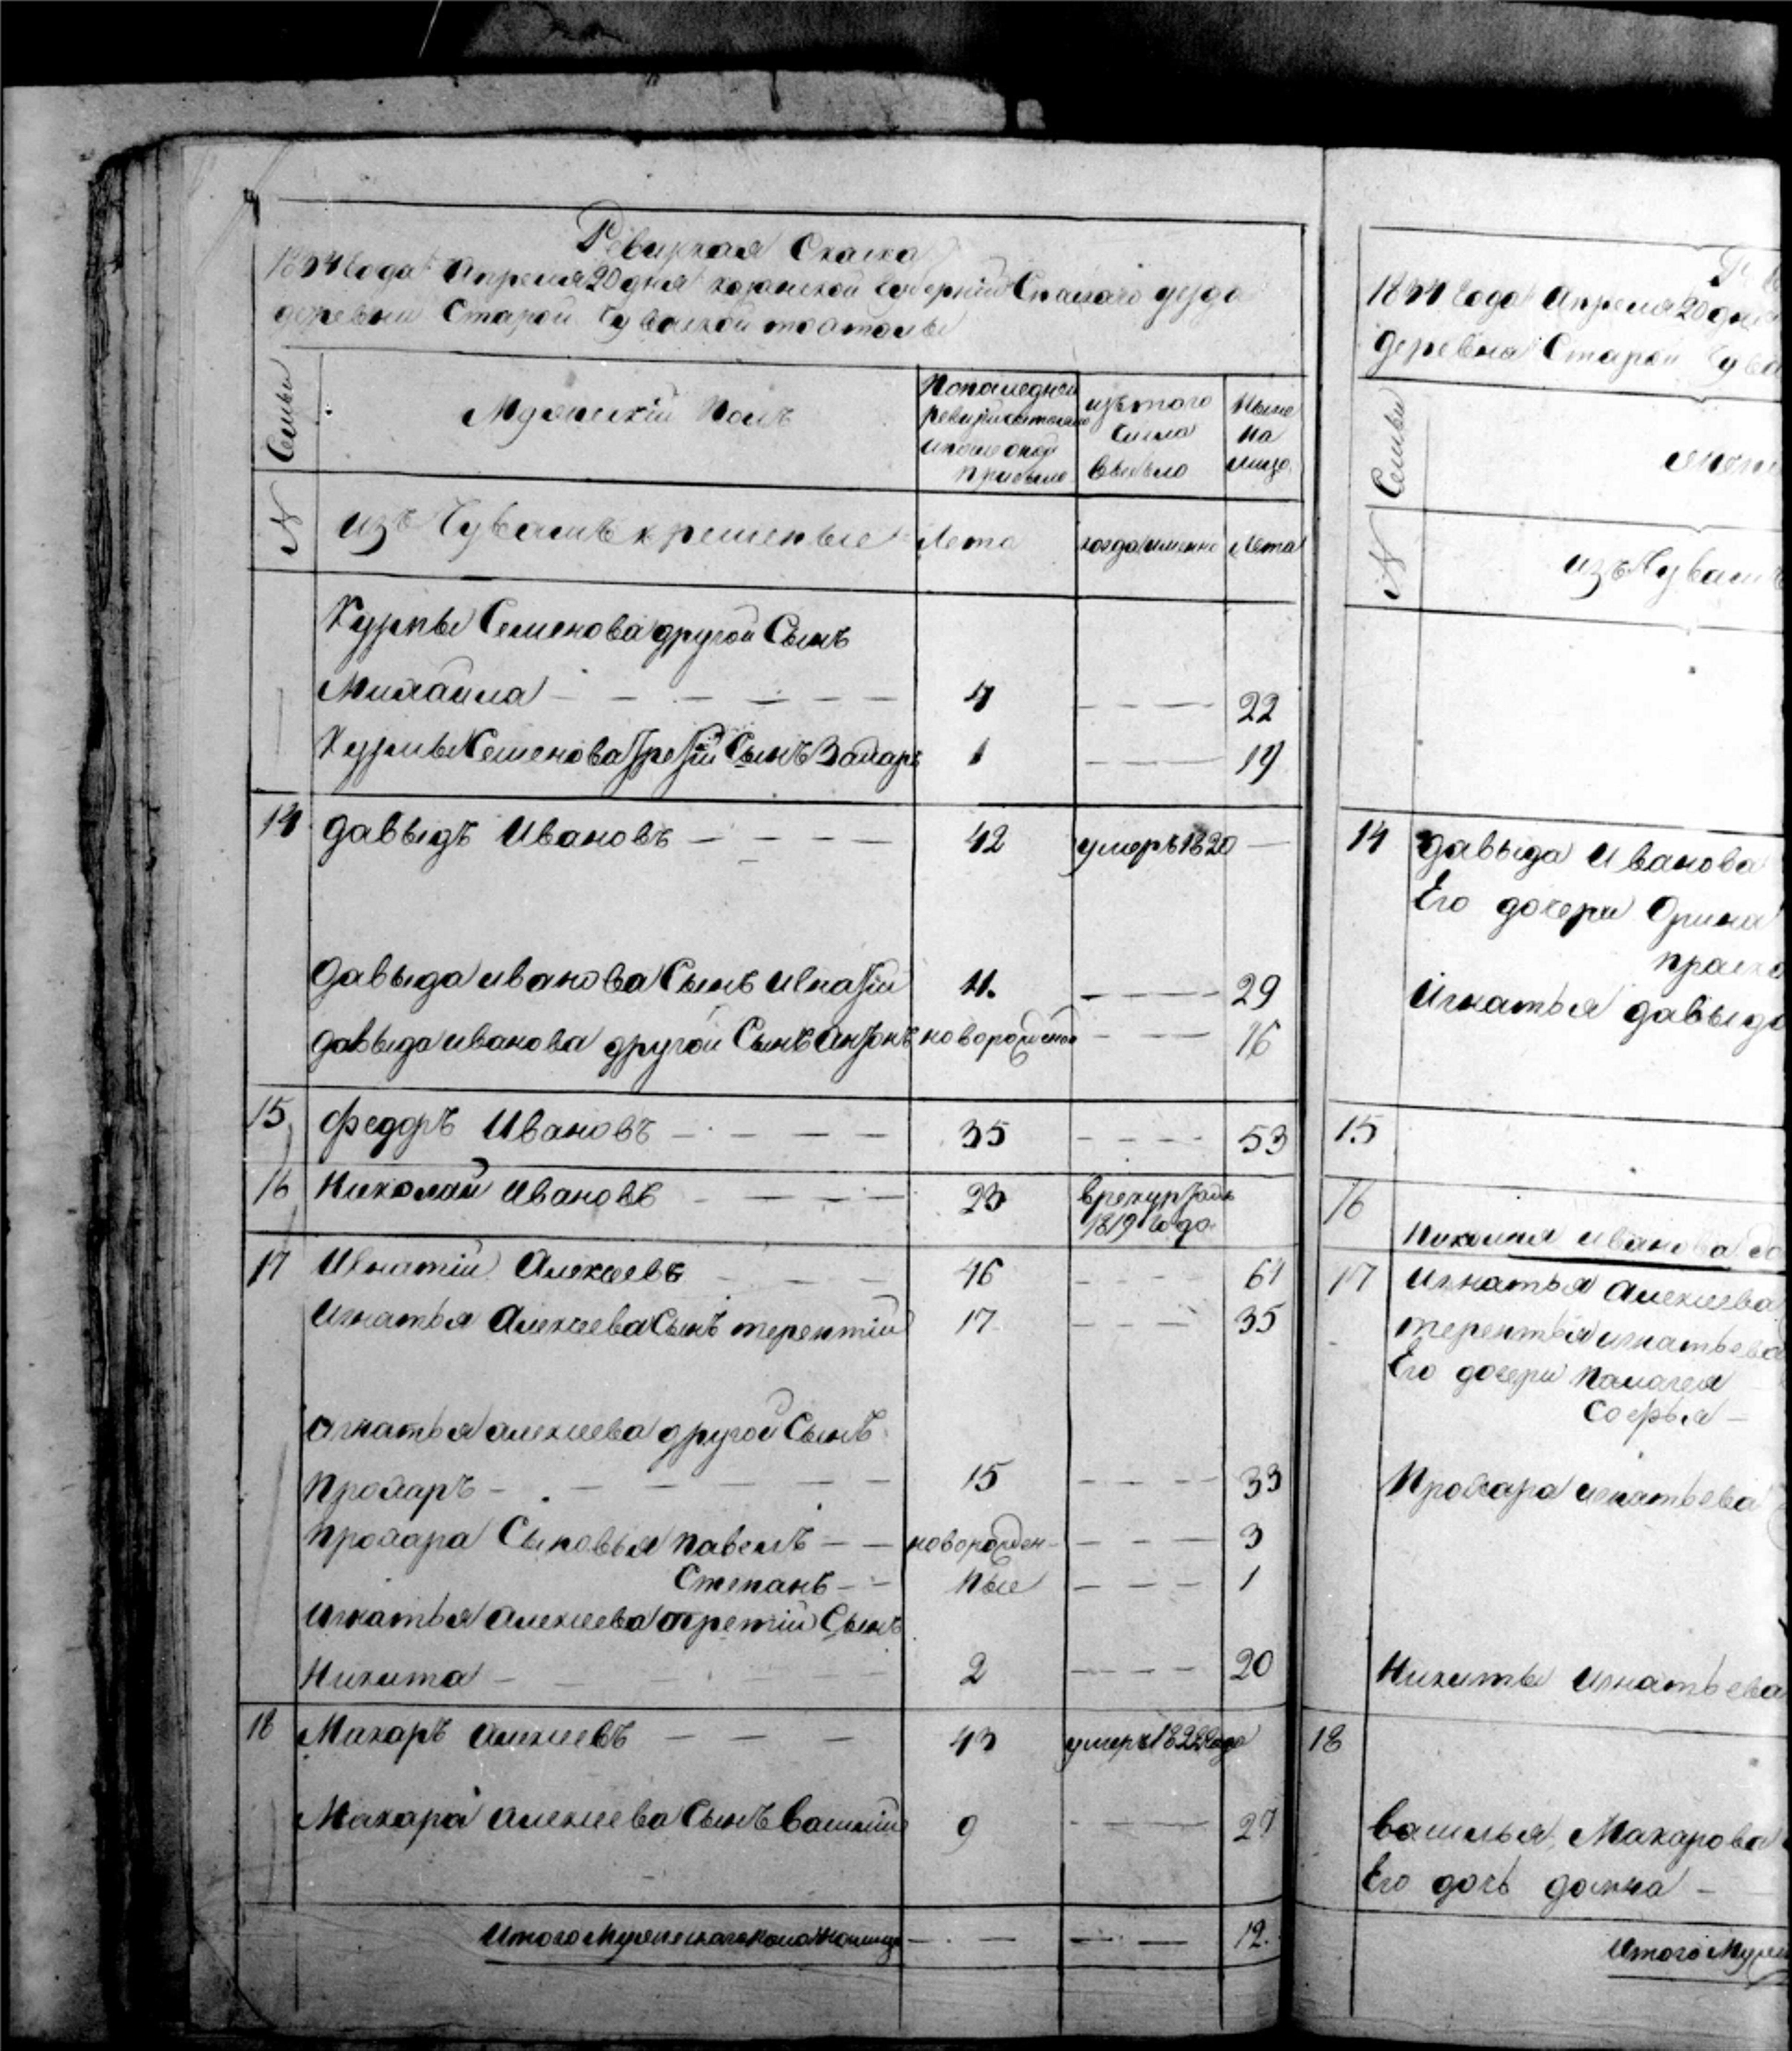 Ревизкая Скаска
1834 года Апреля 20 дня казанской губернии Спаского уезда
деревни Старой Чувакой
№ Семьи
Мужеский Полъ
Попоследней
ревизи состояло
ипосле оной
прибыло
изътого
Числа
выбыло
Ныне
На
лицо
изъ Чувашъ крещеные
Лета
когда именно
Лета
Кузмы Семенова другой Сынъ
Михайла 4 22
Кузмы Семенова третiй Сынъ Захаръ 1 19
14 давыдъ Ивановъ 42 умеръ 1820
давыда иванова Сынъ Игнатiй 11. 29
давыда иванова другой Сынъ Антонъ новорожденой 16
15 федоръ Ивановъ 35 53
16 Николай Ивановъ 23 врекруты
1819 года
17 Игнатiй Алексеевъ 46 64
Игнатья Алексеева Сынъ терентiй 17 35
Игнатья алексеева другой Сынъ
прохаръ 15 33
прохара Сыновья павелъ новорожден 3
Степанъ ные 1
Игнатья Алексеева третiй Сынъ
Никита 2 20
18 Макаръ Алексеевъ 43 умеръ 1822 года
Макара Алексеева Сынъ Василiй 9 27
Итого Мужескаго пола Налицо 12.
1834 года Апреля 20 дня
деревна Старой Чува
№ Семьи
изъ Чувашъ
14 давыда Иванова
Его дочери Орина
праско
Игнатья давыдо
15
16
Николая иванова
17 Игнатья Алексеева
терентья игнатьева
Его дочери палагея
Софья
Прохара игнатьева
Никиты Игнатьева
18
василья Макарова
Его дочь домна
Итого